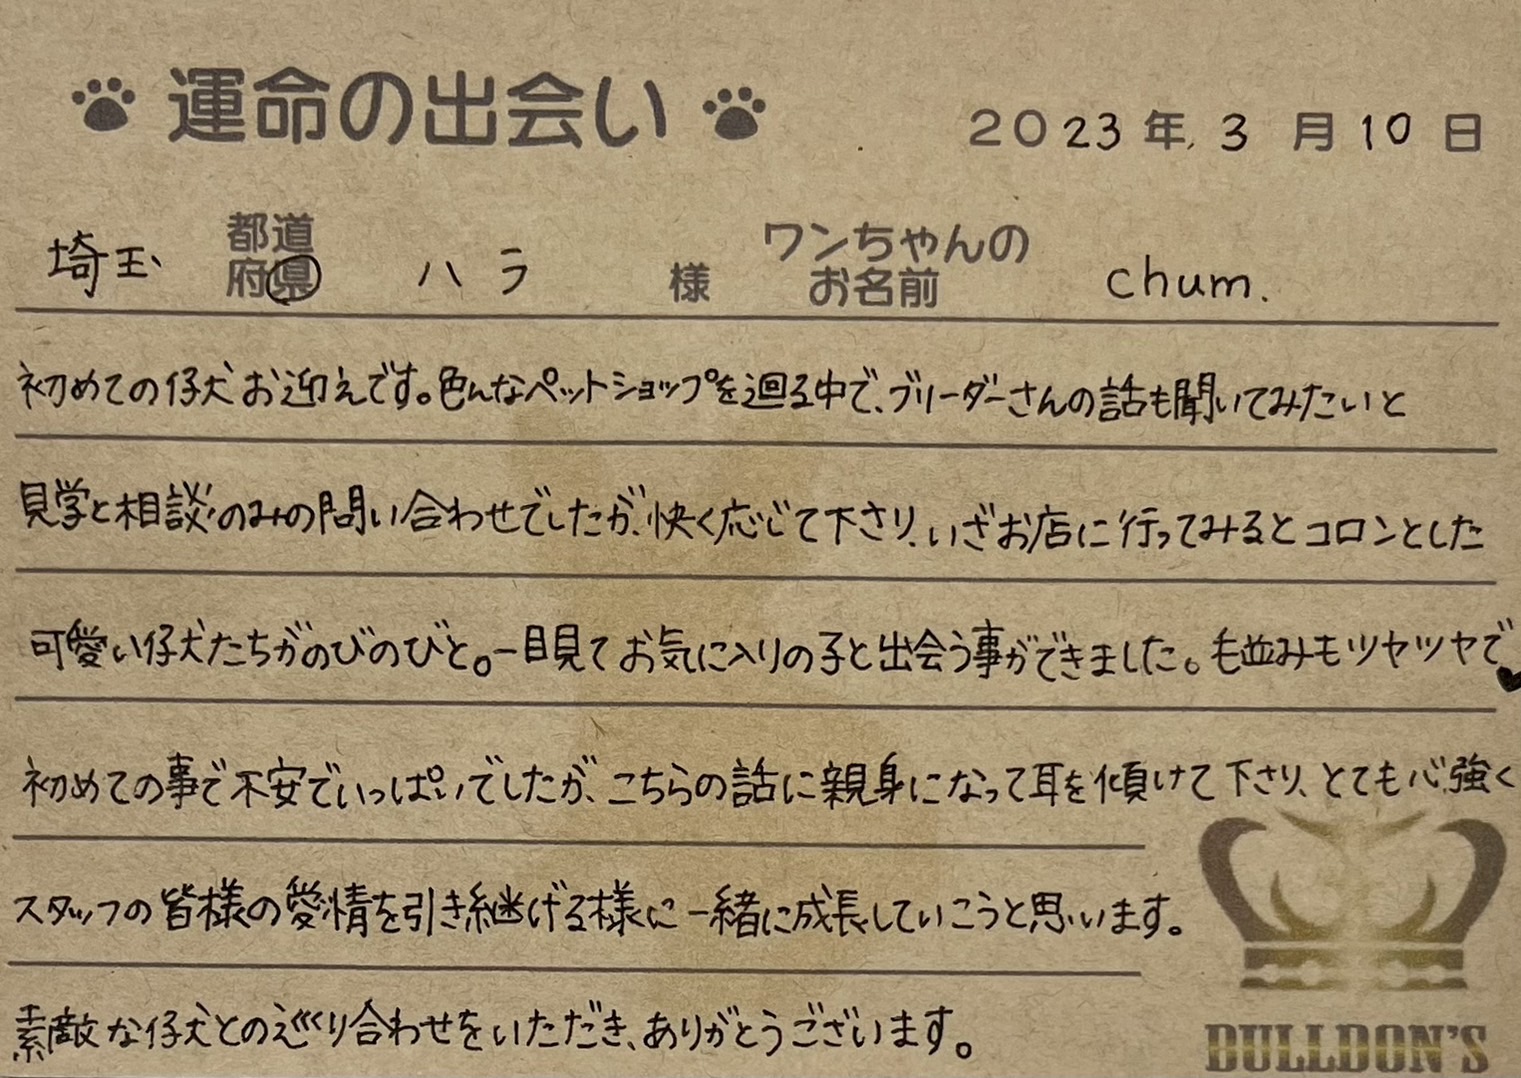 運命の出会い
2023年3月10日
埼玉 都道府県 ハラ 様 ワンちゃんのお名前 chum.
初めての仔犬お迎えです。色んなペットショップを廻る中で、ブリーダーさんの話も聞いてみたいと
見学と相談のみの問い合わせでしたが、快く応じて下さり、いざお店に行ってみるとコロンとした
可愛い仔犬たちがのびのびと。一目見てお気に入りの子と出会う事ができました。毛並みもツヤツヤで♥
初めての事で不安でいっぱいでしたが、こちらの話に親身になって耳を傾けて下さり、とても心強く
スタッフの皆様の愛情を引き継げる様に一緒に成長していこうと思います。
素敵な仔犬との巡り合わせをいただき、ありがとうございます。
BULLDON'S